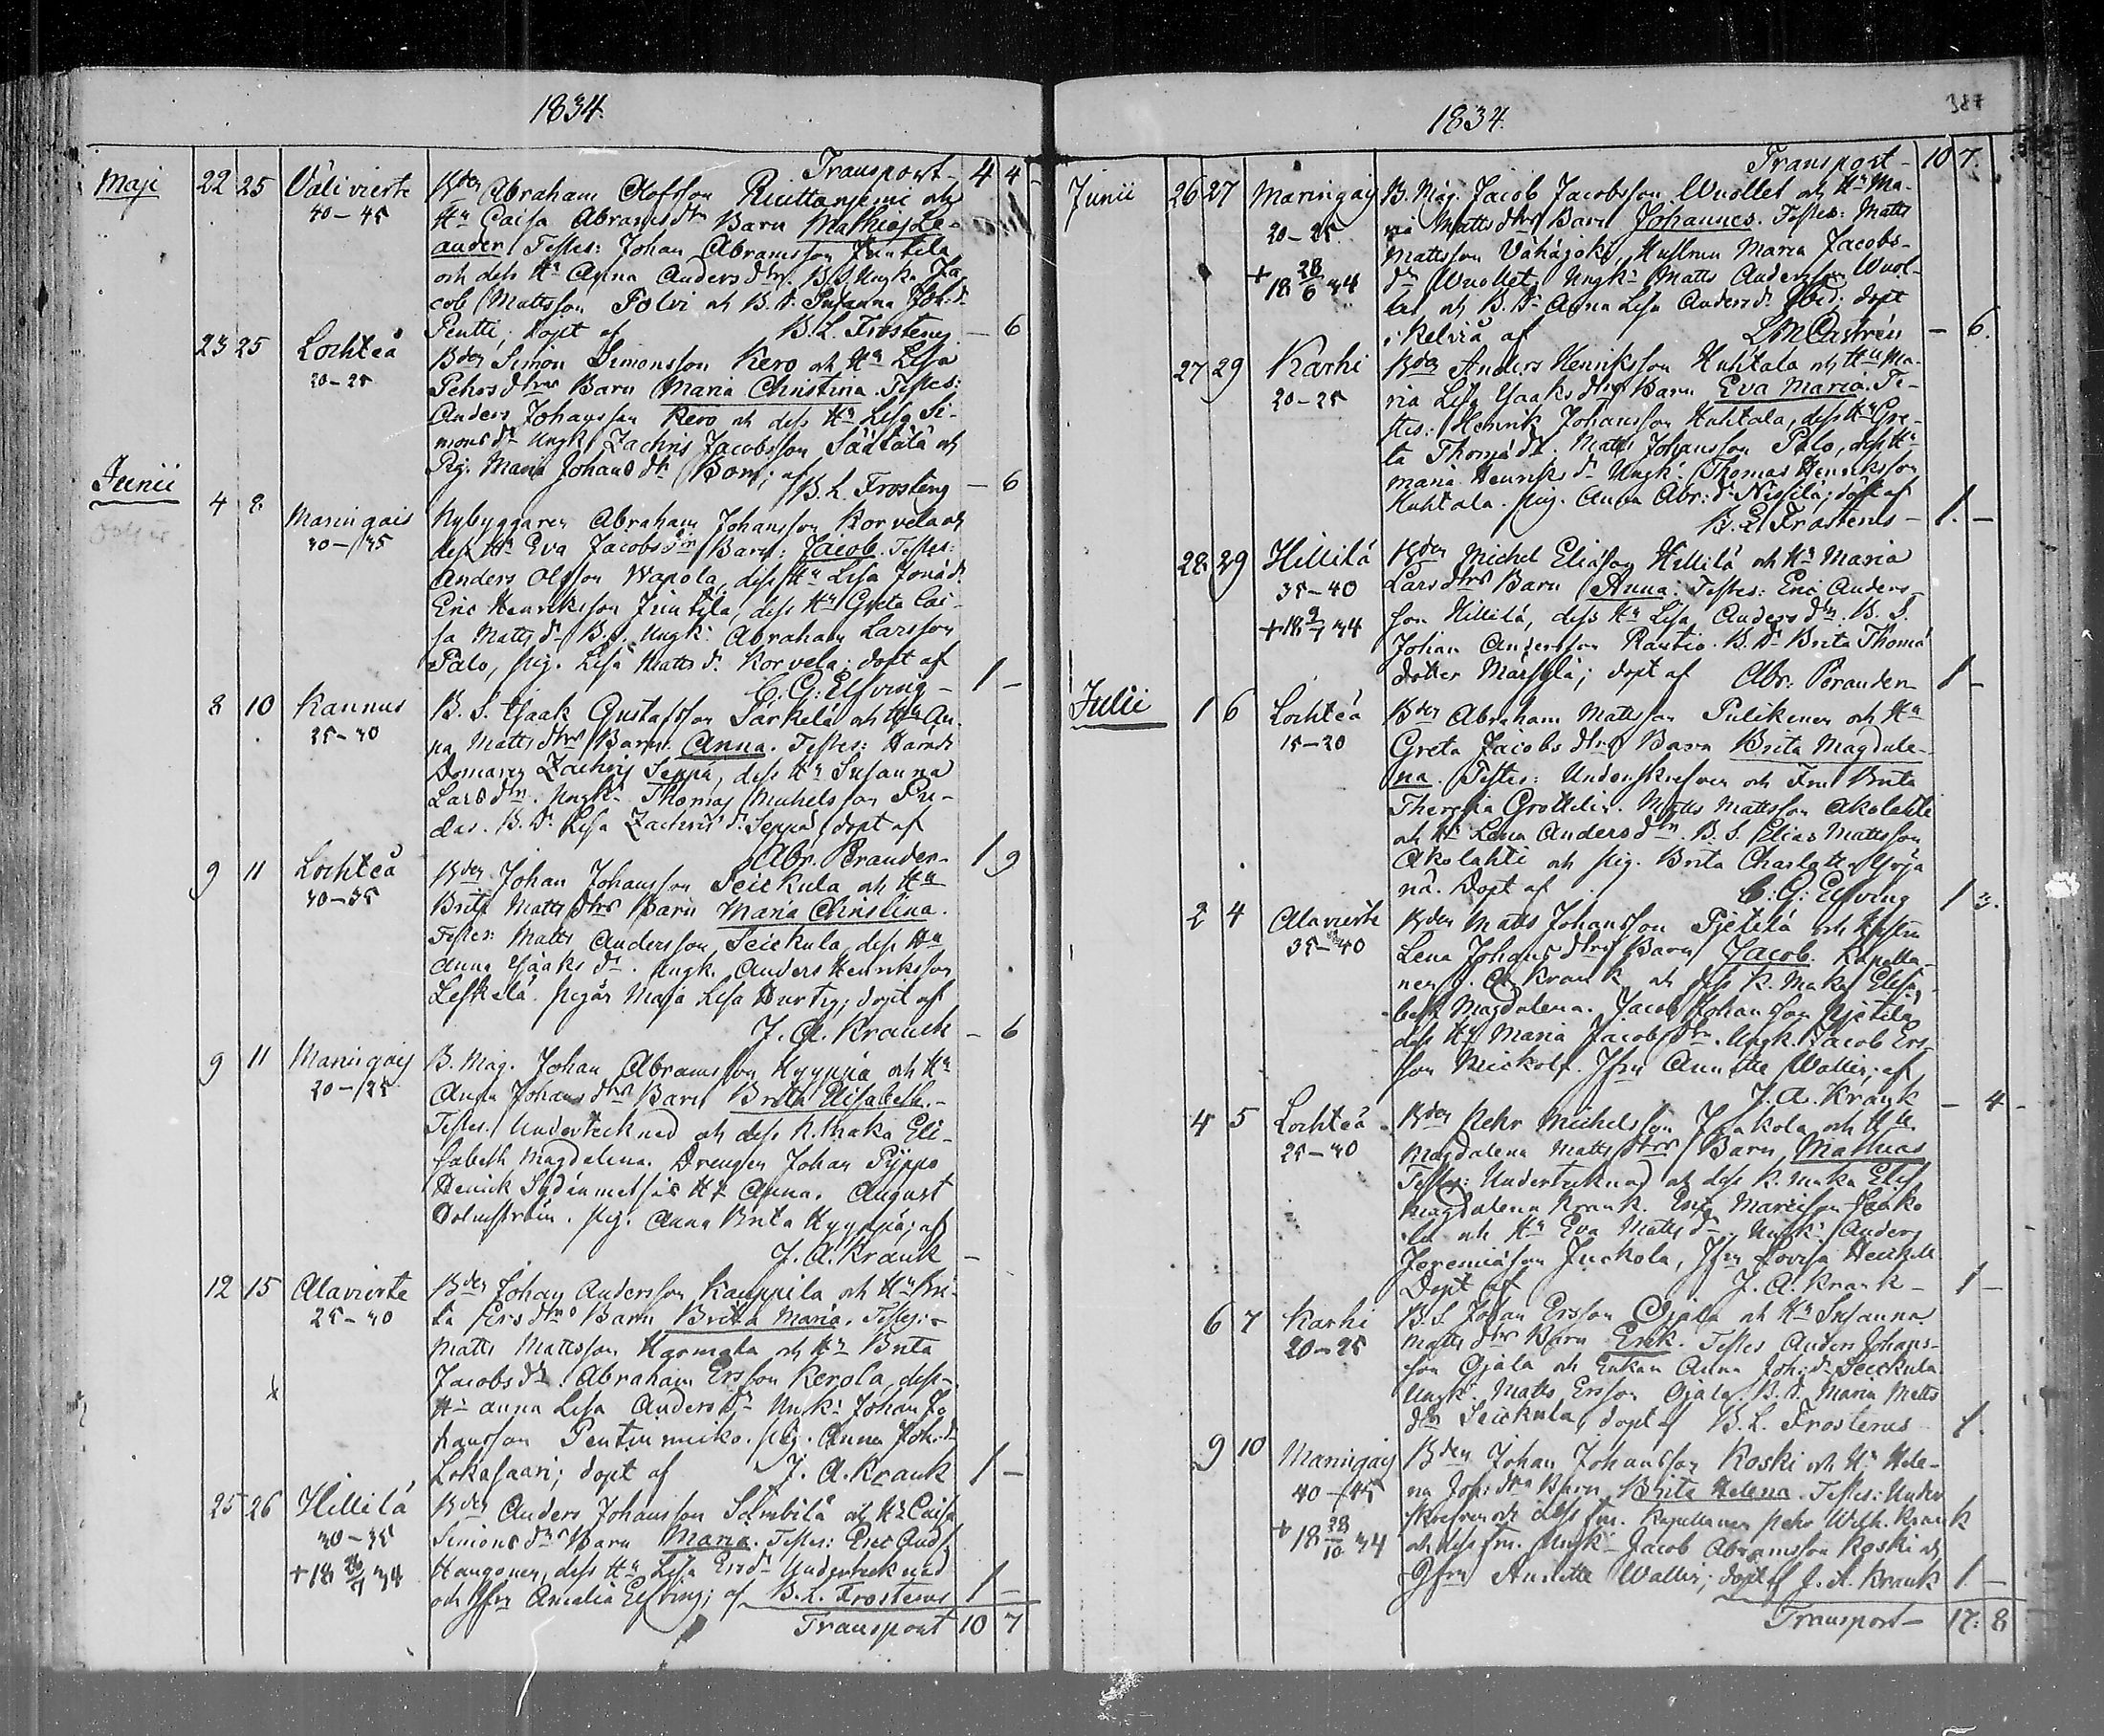 1834.
Transport - 4 4 -
Maji 22 25 Välivierte Bden Abraham Olofsson Ruuttaniemi och
40-45 Hu Caisa Abramsdtrs Barn Mathias Le-
ander Testes: Johan Abramsson Junttila
och dess Hu Anna Andersdtr. B.S. Ungk. Ja-
cob Mattsson Polvi och B.D. Susanna Joh:d:
Pentti; döpt af B. L. Frosterus - 6
23 25 Lochteå Bden Simon Simonsson Kero och Hu Lisa
20-25 Pehrsdtrs Barn Maria Christina. Testes:
Anders Johansson Kero och dess Hu Lisa Si-
monsdr Ungk. Zachris Jacobsson Säätälä och
Pig. Maria Johansdr Borg; af
B. L. Frosterus - 6
Junii
4 8 Maringais Nybyggaren Abraham Johansson Korvela och
30-35 dess Hu Eva Jacobsdtrs Barn: Jacob. Testes:
Anders Olsson Wapola, dess Hu Lisa Jonæd.
Eric Henriksson Junttila, dess Hu Greta Cai-
sa Mattsdr B.S. Ungk: Abraham Larsson
Palo, pig. Lisa Mattsd. Korvela; döpt af
C. G: Elfving - 1 -
8 10 Kannus B. S. Isaak Gustafsson Särkelä och Hu An-
25-30 na Mattsdtrs Barn: Anna. Testes: Härads
Domaren Zachris Seppä, dess Hu Susanna
Larsdtr. Ungk: Thomas Michelsson
B. Dr Lisa Zachrisd: Seppä; döpt af
Abr. Perander - 1 9
9 11 Lochteå Bden Johan Johansson Seickula och Hu
30-35 Brita Mattsdtrs Barn Maria Christina.
Testes: Matts Andersson Seickula, dess Hu
Anna Isaaksdr. Ungk. Anders Henriksson
Leskelä. pigan Maja Lisa Hurtig; döpt af
J. A. Krank - 6
9 11 Maringais B. Måg. Johan Abramsson Kyyniä och Hu
20-25 Anna Johansdtrs Barn Brita Elisabeth.-
Testes. Undertecknad och dess K. Maka Eli-
sabeth Magdalena. Drengen Johan Pyppo
Henrik Sydänmetsäs Hu Anna. August
Holmström. pig. Anna Brita Kyyniä; af
J. A. Krank -
12 15 Alavierte Bden Johan Andersson Kauppila och Hu Bri-
25-30 ta Ersdtrs Barn Brita Maria. Testes:-
Matts Mattsson Karmala och Hu Brita
Jacobsdr. Abraham Ersson Kerola, dess
Hu Anna Lisa Andersdr Ungk: Johan Jo-
hansson Pentinmiko. pig. Anna Joh:d:
Lokasaari; döpt af J. A. Krank 1 -
25 26 Hillilä Bden Anders Johansson Sämbilä och Hu Caisa
30-35 Simonsdtrs Barn Maria. Testes: Eric Ands:
+ 18 34 Haugonen, dess Hu Lisa Ersdr Undertecknad
och Jfru Amalia Elfving; af B. L. Frosterus 1 -
Transport 10 7
387
1834.
Transport - 10 7.
Junii 26 27 Maringais B. Måg. Jacob Jacobsson Wuollet och Hu Ma-
20-25. ria Mattsdtrs Barn Johannes. Testes: Matts
Mattsson Vähäjoki, Hustrun Maria Jacobs-
+ 18 28/6 34 dr Wuollet, Ungk: Matts Andersson Wuol-
let, och B. Dr Anna Lisa Andersd: ibid: döpt
i Kelviå af L M Castrén - 6.
27 29 Karhi Bden Anders Henriksson Huhtala och Hu Ma-
20-25 ria Lisa Isaaksdtrs Barn Eva Maria. Te-
stes: Henrik Johansson Huhtala, dess Hu Gre-
ta Thomædr. Matts Johansson Palo, dess Hu
Maria Henriksdr Ungk: Thomas Henriksson
Huhtala. Pig. Anna Abr:dr Nissilä; döpt af
B. L. Frosterus - 1. -
28 29 Hillilä Bden Michel Eliasson Hillilä och Hu Maria
35-40 Larsdtrs Barn Anna. Testes: Eric Anders-
+ 18 9/7 34 son Hillilä, dess Hu Lisa Andersdtr. B. S.
Johan Andersson Rautio. B. Dr Brita Thomæ
dotter Märsylä; döpt af Abr: Perander - 1 -
Julii 1 6 Lochteå Bden Abraham Mattsson Pulkinen och Hu
15-20 Greta Jacobsdtrs Barn Brita Magdale-
na. Testes: Underskrefven och Fru Brita
Theresia Grottelin. Matts Mattsson Akolahti
och Hu Lena Andersdtr. B. S. Elias Mattsson
Akolahti och pig. Brita Charlotta Yrjä
nä. Döpt af C: G: Elfving 1 3.
2 4 Alavierte Bden Matts Johansson Pjetilä och Hustru
35-40 Lena Johansdtrs Barn Jacob. Kapella-
nen J. A. Krank och dess K. Maka Elisa-
beth Magdalena. Jacob Johansson Pjetilä
dess Hu Maria Jacobsdtr. Ungk. Jacob Ers-
son Meickola. Jfru Annette Wallin; af
J. A. Krank - 4 -
4 5 Lochteå Bden Pehr Michelsson Junkola och Hu
25-30 Magdalena Mattsdtrs Barn Mathias
Testes: Undertecknad och dess K. Maka Elis.
Magdalena Krank. Eric Matsson Junko-
la och Hu Eva Mattsdr Ungk: Anders
Jeremiæson Juckola, Jfru Lovisa Heickell
Döpt af J. A. Krank - 1 -
6 7 Karhi B. S. Johan Ersson Ojala och Hu Susanna
20-25 Mattsdtrs Barn Erik. Testes Anders Johans-
son Ojala och Enkan Anna Joh:dr Seickula
Ungk: Matts Ersson Ojala. B. D. Maria Matts
dtr Seickula, döpt af B. L. Frosterus 1.
9 10 Maringais Bden Johan Johansson Koski och Hu Hele-
40-45 na Joh:dtrs Barn Brita Helena. Testes: Under
+ 18 28/10 34 skrefven och dess fru. Kapellanen Pehr Wilh. Krank
och dess fru. Ungk: Jacob Abramsson Koski och
Jfru Annette Wallin; döpt af J. A. Krank 1 -
Transport - 17: 8